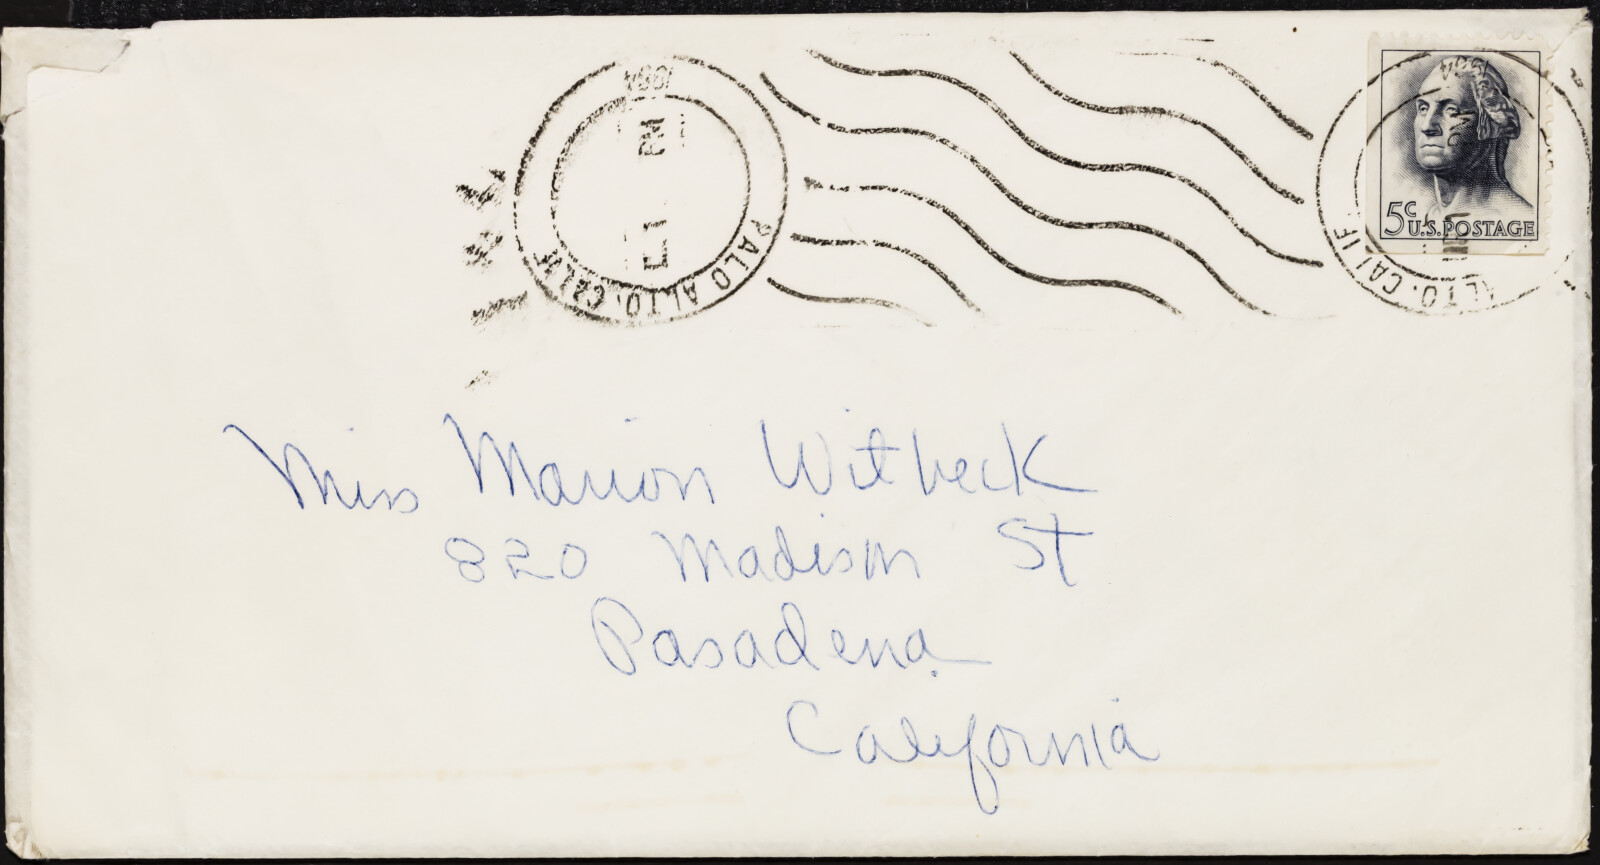 PALO ALTO, CALIF.
PM
1964
5c
U.S. POSTAGE
ALTO, CALIF
1964
Miss Marion Witbeck
820 Madison St
Pasadena
California